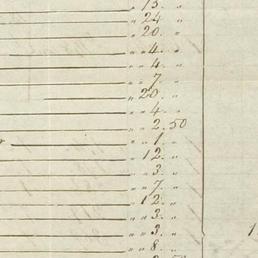 " 13. "
" 24 "
" 20. "
" " 4. "
" " 4. "
" " 7. "
" 20. "
" " 4. "
" " 2.50
" " 1. "
" 12. "
" " 3. "
" " 7. "
" 12. "
" " 3. "
" " 3. "
" " 8. "